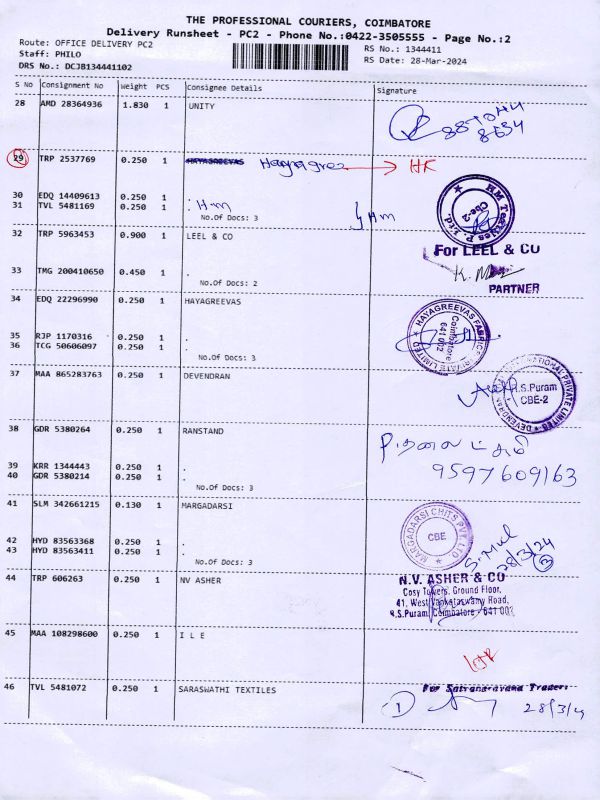 THE PROFESSIONAL COURIERS, COIMBATORE
Delivery Runsheet - PC2 - Phone No.:0422-3505555 - Page No.:2
Route: OFFICE DELIVERY PC2
Staff: PHILO
DRS No.: DCJB134441102
RS No.: 1344411
RS Date: 28-Mar-2024
S No Consignment No Weight PCS Consignee Details Signature
28 AMD 28364936 1.830 1 UNITY
8634
29 TRP 2537769 0.250 1 HAYAGREEVAS HR
30 EDQ 14409613 0.250 1 .
31 TVL 5481169 0.250 1 . Hm
No.Of Docs: 3 Hm
HM Textiles P. Ltd. Cbe-2
32 TRP 5963453 0.900 1 LEEL & CO
For LEEL & CO
33 TMG 200410650 0.450 1 .
No.Of Docs: 2
PARTNER
34 EDQ 22296990 0.250 1 HAYAGREEVAS
35 RJP 1170316 0.250 1 .
36 TCG 50606097 0.250 1 .
No.Of Docs: 3
HAYAGREEVAS FABRICS PRIVATE LIMITED
Coimbatore
641 002
37 MAA 865283763 0.250 1 DEVENDRAN
R.S.Puram
CBE-2
38 GDR 5380264 0.250 1 RANSTAND
39 KRR 1344443 0.250 1 .
40 GDR 5380214 0.250 1 .
No.Of Docs: 3
9597609163
41 SLM 342661215 0.130 1 MARGADARSI
42 HYD 83563368 0.250 1 .
43 HYD 83563411 0.250 1 .
No.Of Docs: 3
MARGADARSI CHITS PVT. LTD
CBE
28/3/24
3
44 TRP 606263 0.250 1 NV ASHER
N.V. ASHER & CO
Cosy Towers, Ground Floor,
41, West Venkataswamy Road,
R.S.Puram, Coimbatore - 641 002
45 MAA 108298600 0.250 1 I L E
46 TVL 5481072 0.250 1 SARASWATHI TEXTILES
For Satyanarayana Traders
1
28/3/4